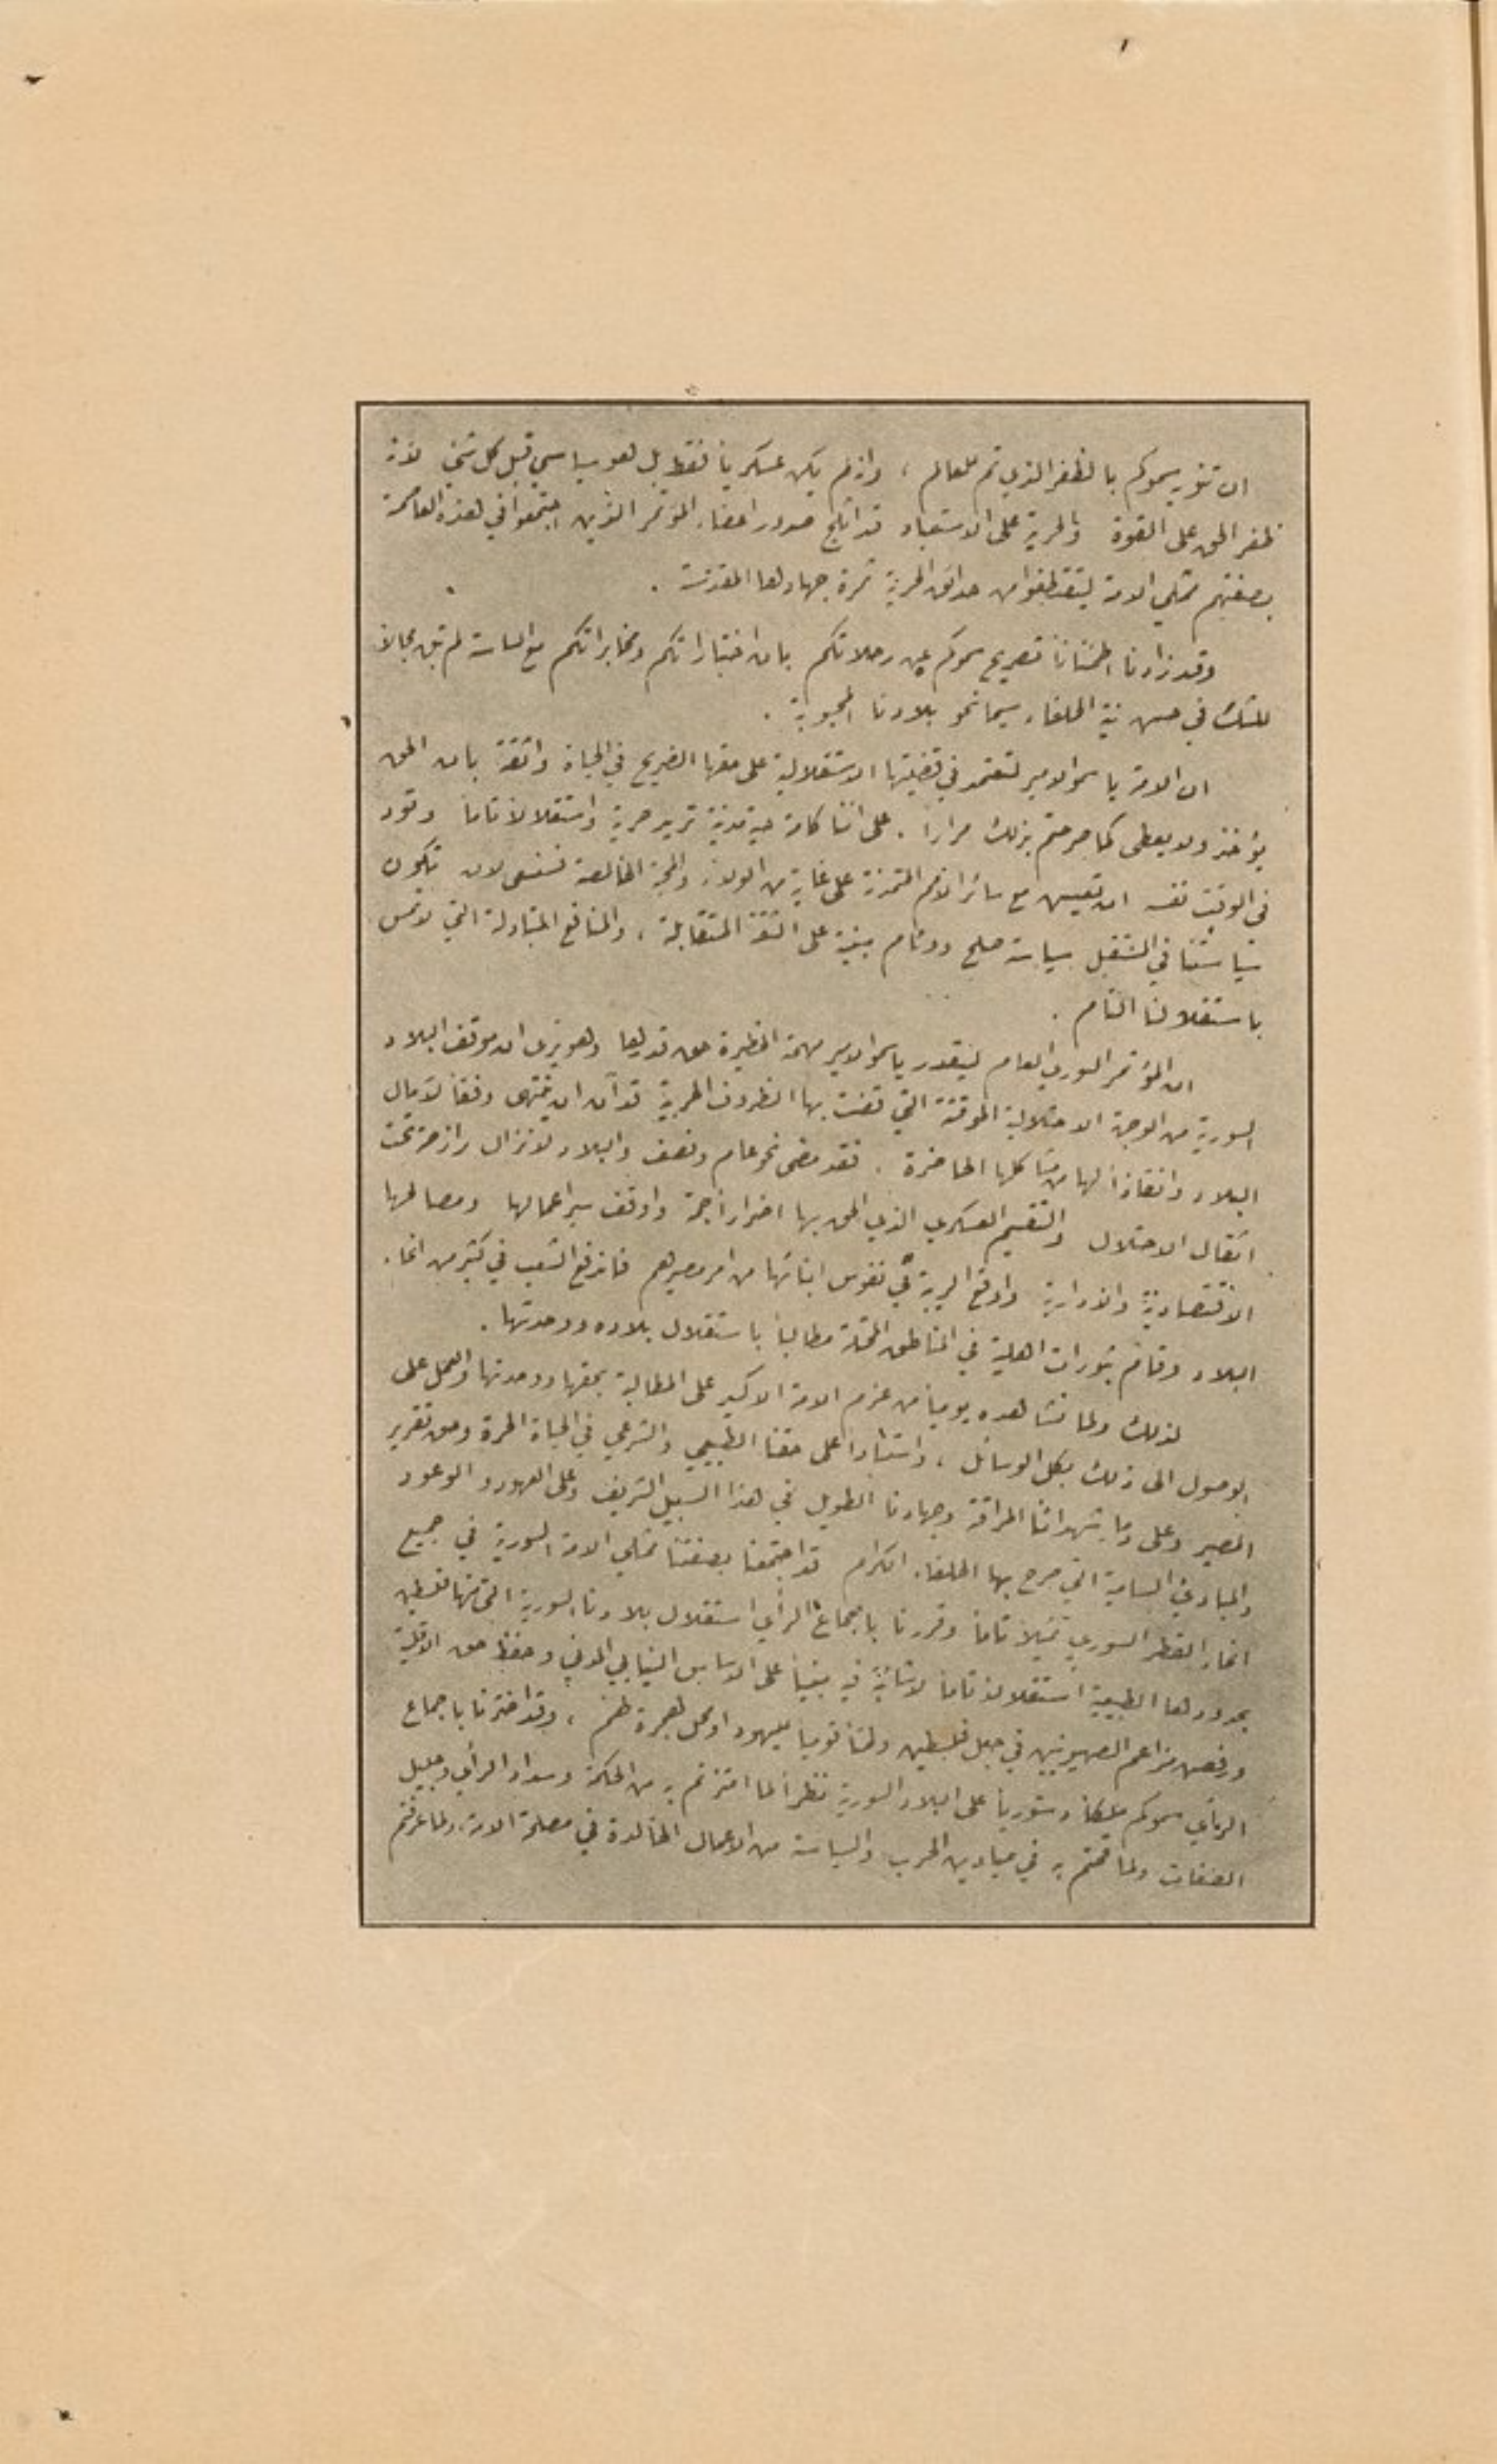 ان تنويه سموكم بالظفر الذي تم للعالم ، وانه لم يكن عسكرياً فقط بل هو سياسي قبل كل شيء لانه
ظفر الحق على القوة والحرية على الاستعباد قد اثلج صدور اعضاء المؤتمر الذين اجتمعوا في هذه العاصمة
بصفتهم ممثلي الامة ليقتطفوا من حدائق الحرية ثمرة جهادها المقدسة .
وقد زادنا اطمئناناً تصريح سموكم عن رحلاتكم بان اختباراتكم ومخابراتكم مع الساسة لم تبق مجالاً
للشك في حسن نية الحلفاء سيما نحو بلادنا المحبوبة .
ان الامة يا سمو الامير لتعتمد في قضيتها الاستقلالية على حقها الصريح في الحياة واثقة بان الحق
يؤخذ ولا يعطى كما صرحتم بذلك مراراً . على اننا كامة حية مدنية تريد حرية واستقلالاً تاماً وتود
في الوقت نفسه ان تعيش مع سائر الامم المتمدنة على غاية من الولاء والمحبة الخالصة فنسعى لان تكون
سياستنا في المستقبل سياسة صلح ووئام مبنية على الثقة المتقابلة ، والمنافع المتبادلة التي لا تمس
باستقلالنا التام .
ان المؤتمر السوري العام ليقدر يا سمو الامير مهمته الخطيرة حق قدرها وهو يرى ان موقف البلاد
السورية من الوجهة الاحتلالية الموقتة التي قضت بها الظروف الحربية قد آن ان ينتهى وفقاً لآمال
البلاد وانقاذاً لها من مشاكلها الحاضرة . فقد مضى نحو عام ونصف والبلاد لا تزال رازحة تحت
اثقال الاحتلال والتقسيم العسكري الذي الحق بها اضراراً جمة واوقف سير اعمالها ومصالحها
الاقتصادية والادارية واوقع الريبة في نفوس ابنائها من امر مصيرهم فاندفع الشعب في كثير من انحاء
البلاد وقام بثورات اهلية في المناطق المحتلة مطالباً باستقلال بلاده ووحدتها .
لذلك ولما نشاهده يومياً من عزم الامة الاكيد على المطالبة بحقها ووحدتها والعمل على
الوصول الى ذلك بكل الوسائل ، واستناداً على حقنا الطبيعي والشرعي في الحياة الحرة وحق تقرير
المصير وعلى دماء شهدائنا المراقة وجهادنا الطويل في هذا السبيل الشريف وعلى العهود والوعود
والمبادئ السامية التي صرح بها الحلفاء الكرام قد اجتمعنا بصفتنا ممثلي الامة السورية في جميع
انحاء القطر السوري تمثيلاً تاماً وقررنا باجماع الرأي استقلال بلادنا السورية التي منها فلسطين
بحدودها الطبيعية استقلالاً تاماً لا شائبة فيه مبنياً على الاساس النيابي المدني وحفظ حق الاقلية
ورفض مزاعم الصهيونيين في جعل فلسطين وطناً قومياً لليهود او محل هجرة لهم ، وقد اخترنا باجماع
الرأي سموكم ملكاً دستورياً على البلاد السورية نظراً لما امتزتم به من الحكمة وسداد الرأي وجليل
الصفات ولما قمتم به في ميادين الحرب والسياسة من الاعمال الخالدة في مصلحة الامة ولما عرفتم